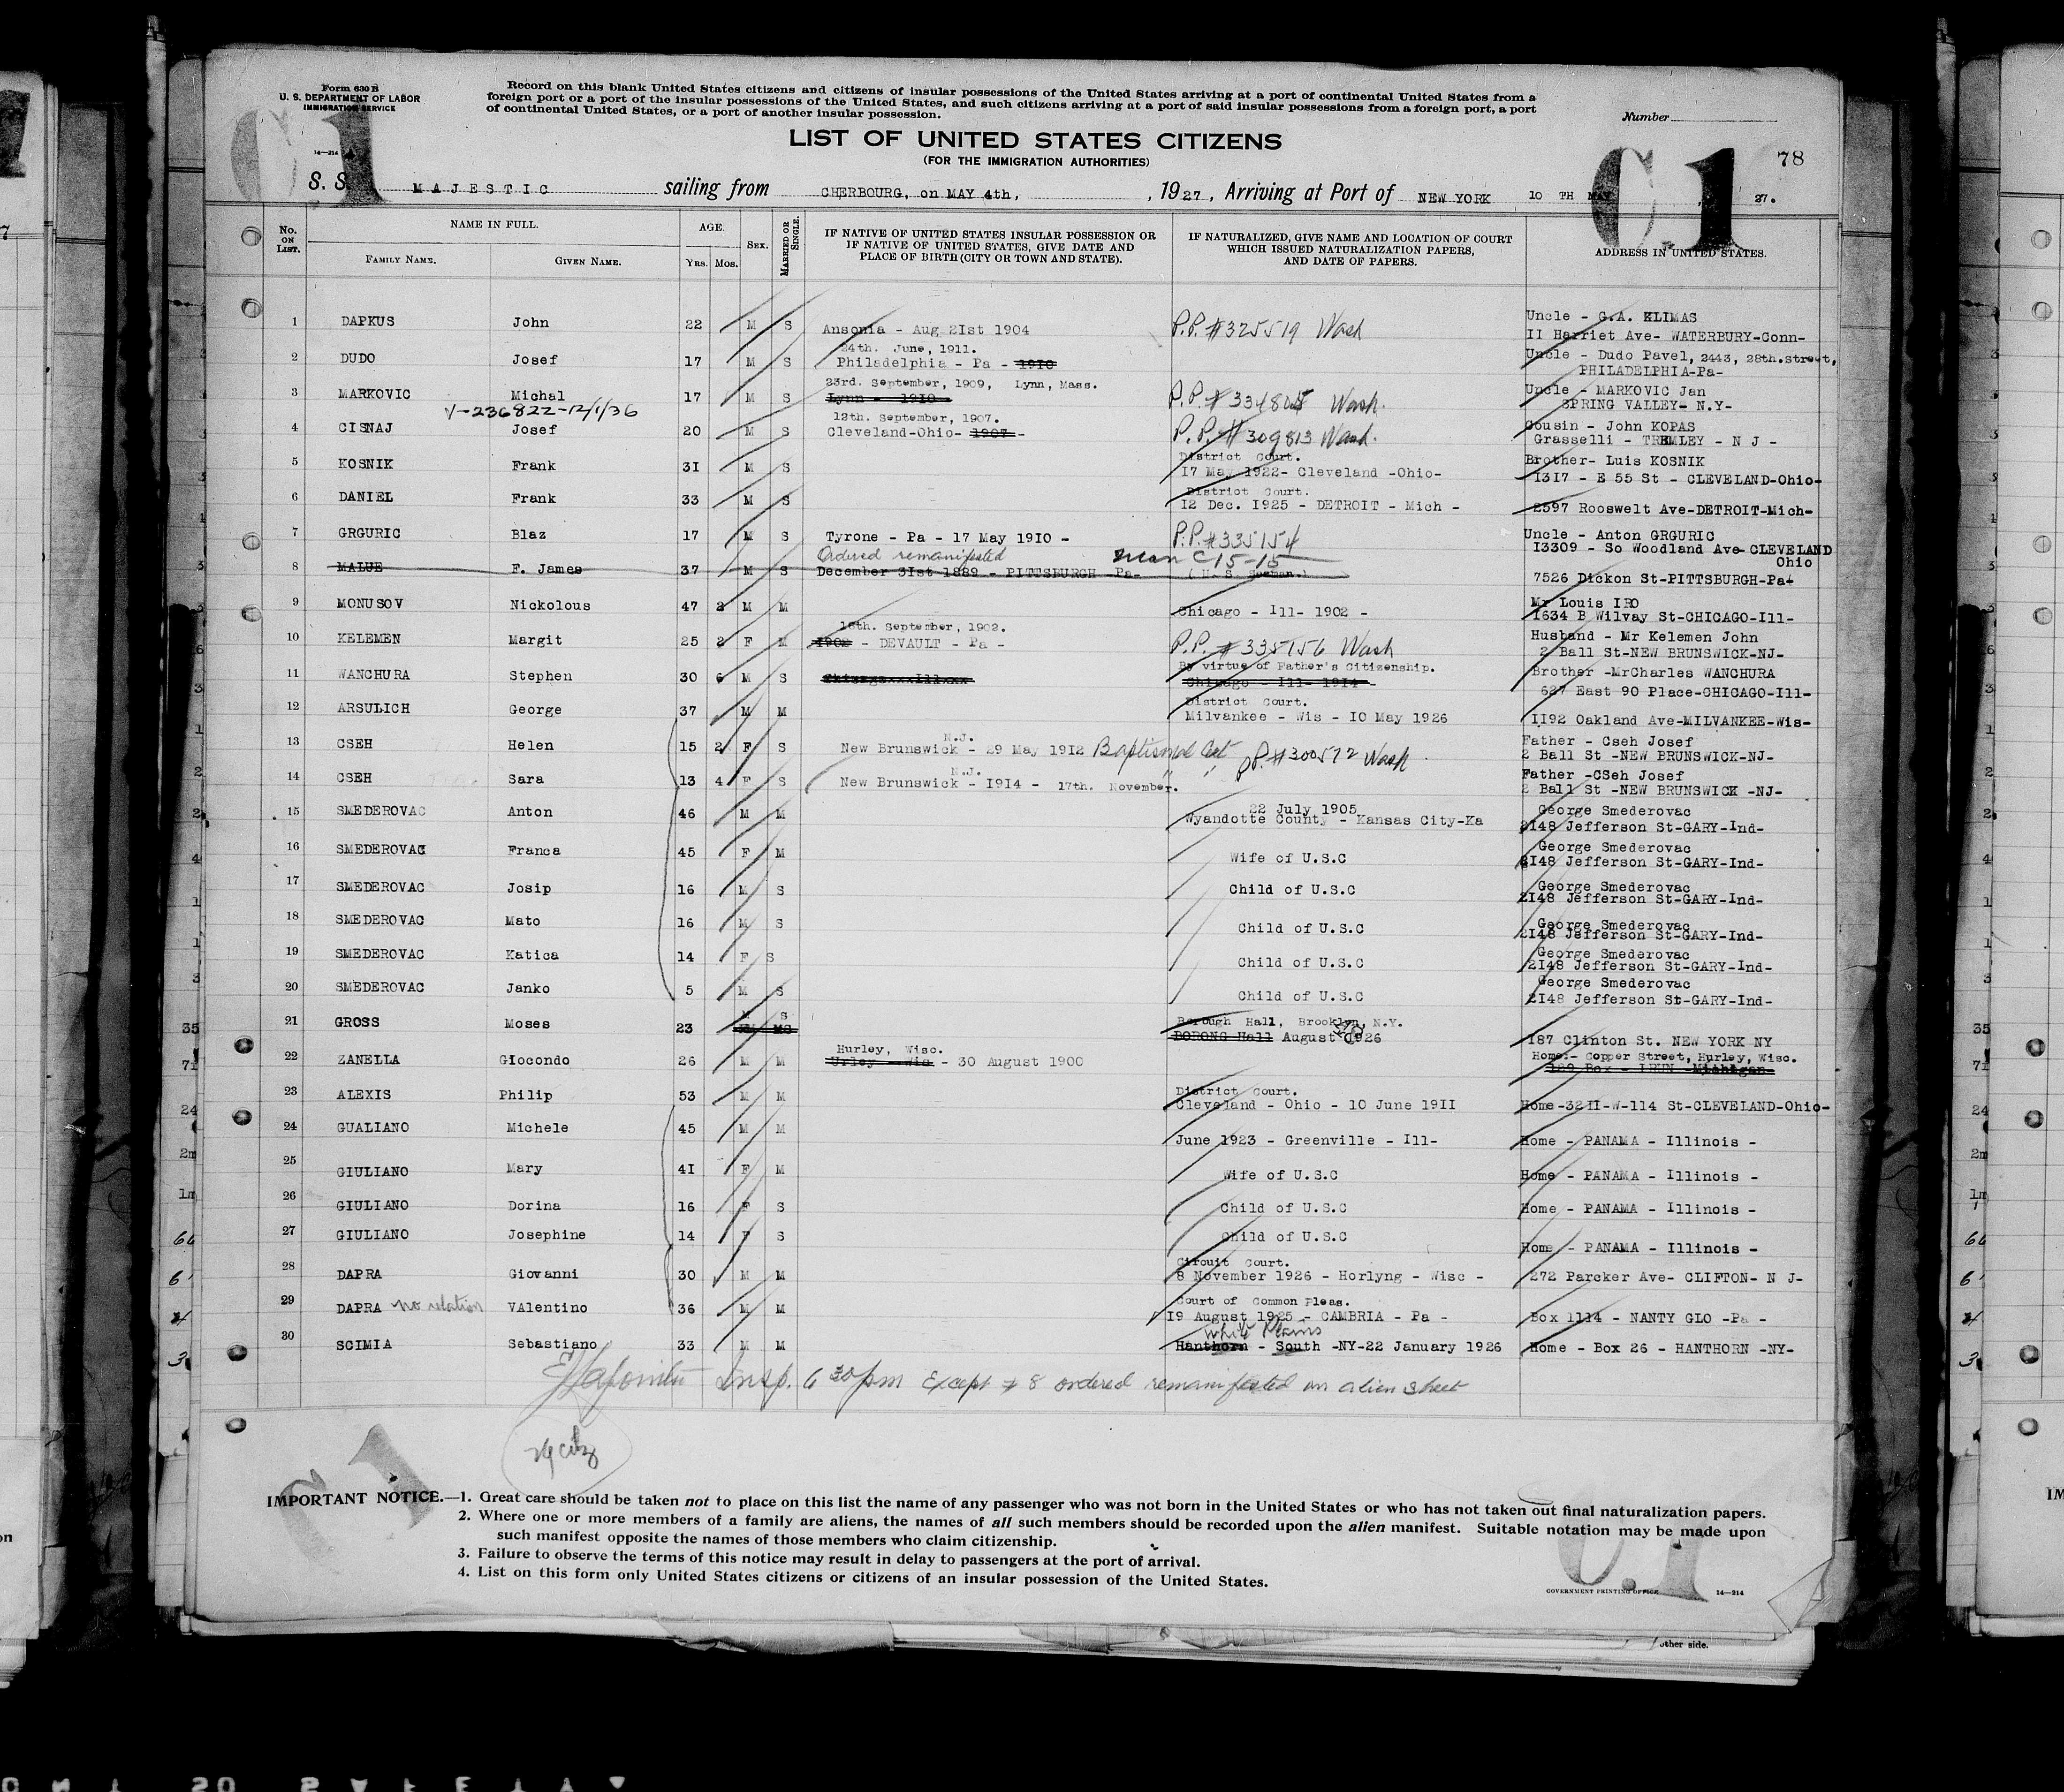 Form 630 B
U. S. DEPARTMENT OF LABOR
IMMIGRATION SERVICE
14—214
Record on this blank United States citizens and citizens of insular possessions of the United States arriving at a port of continental United States from a
foreign port or a port of the insular possessions of the United States, and such citizens arriving at a port of said insular possessions from a foreign port, a port
of continental United States, or a port of another insular possession.
Number
LIST OF UNITED STATES CITIZENS
(FOR THE IMMIGRATION AUTHORITIES)
C1
C1
78
S. S. MAJESTIC sailing from CHERBOURG, on MAY 4th, , 1927, Arriving at Port of NEW YORK 10 TH MAY 27.
No. ON LIST.
NAME IN FULL.
FAMILY NAME.
GIVEN NAME.
AGE.
YRS. MOS.
SEX.
MARRIED OR SINGLE.
IF NATIVE OF UNITED STATES INSULAR POSSESSION OR
IF NATIVE OF UNITED STATES, GIVE DATE AND
PLACE OF BIRTH (CITY OR TOWN AND STATE).
IF NATURALIZED, GIVE NAME AND LOCATION OF COURT
WHICH ISSUED NATURALIZATION PAPERS,
AND DATE OF PAPERS.
ADDRESS IN UNITED STATES.
1 DAPKUS John 22 M S Ansonia - Aug 2Ist 1904 P.P. #325519 Wash Uncle - G.A. KLIMAS
II Harriet Ave- WATERBURY-Conn-
24th. June, 1911.
2 DUDO Josef 17 M S Philadelphia - Pa - 1910 Uncle - Dudo Pavel, 2443, 28th.street,
PHILADELPHIA-Pa-
23rd. September, 1909, Lynn, Mass.
3 MARKOVIC Michal 17 M S Lynn - 1910 - P.P. #334805 Wash. Uncle - MARKOVIC Jan
SPRING VALLEY- N.Y-
V-236822-12/1/36
12th. September, 1907.
4 CISNAJ Josef 20 M S Cleveland-Ohio- 1907 - P.P. #309813 Wash. Cousin - John KOPAS
Grasselli - TREMLEY - N J -
District Court.
5 KOSNIK Frank 3I M S 17 May 1922- Cleveland -Ohio- Brother- Luis KOSNIK
1317 - E 55 St - CLEVELAND-Ohio-
District Court.
6 DANIEL Frank 33 M S 12 Dec. 1925 - DETROIT - Mich - 2597 Rooswelt Ave-DETROIT-Mich-
7 GRGURIC Blaz 17 M S Tyrone - Pa - 17 May 19I0 - P.P. #335154 Uncle - Anton GRGURIC
I3309 - So Woodland Ave-CLEVELAND
Ohio
Ordered remanifested C-15-15
8 MALUE F. James 37 M S December 3Ist 1889 - PITTSBURGH -Pa- (U. S. Seaman.) 7526 Dickon St-PITTSBURGH-Pa-
9 MONUSOV Nickolous 47 2 M M Chicago - Ill- 1902 - Mr Louis IRO
1634 B Wilvay St-CHICAGO-Ill-
18th. September, 1902.
10 KELEMEN Margit 25 2 F M 1902 - DEVAULT - Pa - P.P. #335156 Wash Husband - Mr Kelemen John
2 Ball St-NEW BRUNSWICK-NJ-
By virtue of Father's Citizenship.
11 WANCHURA Stephen 30 6 M S Chicago - Ill- 1914 - Brother -MrCharles WANCHURA
627 East 90 Place-CHICAGO-Ill-
District Court.
12 ARSULICH George 37 M M Milvankee - Wis - IO May 1926 1192 Oakland Ave-MILVANKEE-Wis-
N.J.
13 CSEH Helen 15 2 F S New Brunswick - 29 May 1912 Baptismal Cert P.P. #300572 Wash Father - Cseh Josef
2 Ball St -NEW BRUNSWICK-NJ-
N.J.
14 CSEH Sara 13 4 F S New Brunswick - I9I4 - 17th. November. " " Father -CSeh Josef
2 Ball St -NEW BRUNSWICK -NJ-
15 SMEDEROVAC Anton 46 M M 22 July 1905
Wyandotte County - Kansas City-Ka George Smederovac
2148 Jefferson St-GARY-Ind-
16 SMEDEROVAC Franca 45 F M Wife of U.S.C George Smederovac
2148 Jefferson St-GARY-Ind-
17 SMEDEROVAC Josip 16 M S Child of U.S.C George Smederovac
2148 Jefferson St-GARY-Ind-
18 SMEDEROVAC Mato 16 M S Child of U.S.C George Smederovac
2148 Jefferson St-GARY-Ind-
19 SMEDEROVAC Katica 14 F S Child of U.S.C George Smederovac
2I48 Jefferson St-GARY-Ind-
20 SMEDEROVAC Janko 5 M S Child of U.S.C George Smederovac
2I48 Jefferson St-GARY-Ind-
M S Borough Hall, Brooklyn, N.Y.
21 GROSS Moses 23 BORONG Hall August 1926 187 Clinton St. NEW YORK NY
Hurley, Wisc.
22 ZANELLA GIocondo 26 M M Urley - Wis - 30 August 1900 Home:- Copper Street, Hurley, Wisc.
District Court.
23 ALEXIS Philip 53 M M Cleveland - Ohio - 10 June 19II Home-32II-W-114 St-CLEVELAND-Ohio-
24 GUALIANO Michele 45 M M June 1923 - Greenville - Ill- Home - PANAMA - Illinois -
25 GIULIANO Mary 4I F M Wife of U.S.C Home - PANAMA - Illinois -
26 GIULIANO Dorina 16 F S Child of U.S.C Home - PANAMA - Illinois -
27 GIULIANO Josephine 14 F S Child of U.S.C Home - PANAMA - Illinois -
Circuit Court.
28 DAPRA Giovanni 30 M M 8 November 1926 - Horlyng - Wisc - 272 Parcker Ave- CLIFTON- N J-
Court of Common Pleas.
29 DAPRA no relation VAlentino 36 M M 19 August 1925 - CAMBRIA - Pa - Box 1114 - NANTY GLO -Pa -
White Plains
30 SCIMIA Sebastiano 33 M M Hanthorn - South -NY-22 January 1926 Home - Box 26 - HANTHORN -NY-
Insp. 6 30 pm Except # 8 ordered remanifested on alien sheet
29 citz
C1
IMPORTANT NOTICE.—1. Great care should be taken not to place on this list the name of any passenger who was not born in the United States or who has not taken out final naturalization papers.
2. Where one or more members of a family are aliens, the names of all such members should be recorded upon the alien manifest. Suitable notation may be made upon
such manifest opposite the names of those members who claim citizenship.
3. Failure to observe the terms of this notice may result in delay to passengers at the port of arrival.
4. List on this form only United States citizens or citizens of an insular possession of the United States.
C1
GOVERNMENT PRINTING OFFICE
14—214
other side.